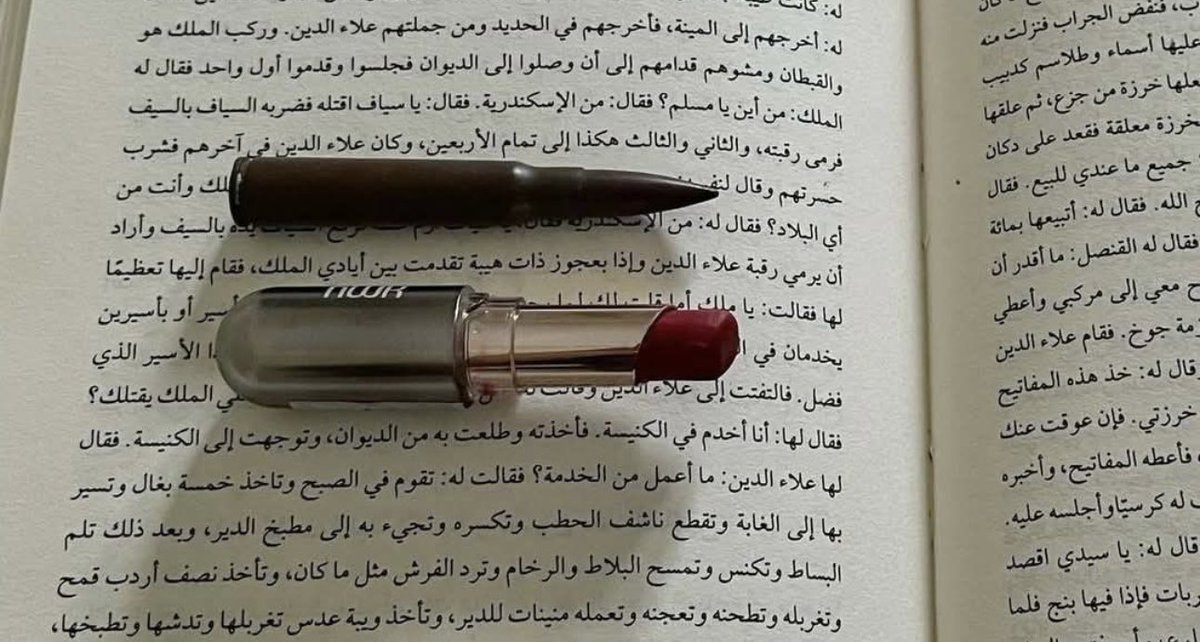 ب، فنفض الجراب فنزلت منه
عليها أسماء وطلاسم كدبيب
علها خرزة من جزع، ثم علقها
خرزة معلقة فقعد على دكان
جميع ما عندي للبيع. فقال
الله. فقال له: أتبيعها بمائة
فقال له القنصل: ما أقدر أن
معي إلى مركبي وأعطي
مة جوخ. فقام علاء الدين
قال له: خذ هذه المفاتيح
خرزتي. فإن عوقت عنك
فأعطه المفاتيح، وأخبره
له كرسيًا وأجلسه عليه.
قال له: يا سيدي اقصد
ربات فإذا فيها بنج فلما
له: كانت
له: أخرجهم إلى المينة، فأخرجهم في الحديد ومن جملتهم علاء الدين. وركب الملك هو
والقبطان ومشوهم قدامهم إلى أن وصلوا إلى الديوان فجلسوا وقدموا أول واحد فقال له
الملك: من أين يا مسلم؟ فقال: من الإسكندرية. فقال: يا سياف اقتله فضربه السياف بالسيف
فرمى رقبته، والثاني والثالث هكذا إلى تمام الأربعين، وكان علاء الدين في آخرهم فشرب
حسرتهم وقال وأنت من
أي البلاد؟ فقال له: من الإسكندرية بالسيف وأراد
أن يرمي رقبة علاء الدين وإذا بعجوز ذات هيبة تقدمت بين أيادي الملك، فقام إليها تعظيمًا
لها فقالت: يا ملك أما أو بأسيرين
يخدمان في الأسير الذي
فضل. فالتفتت إلى علاء الدين الملك يقتلك؟
فقال لها: أنا أخدم في الكنيسة. فأخذته وطلعت به من الديوان، وتوجهت إلى الكنيسة. فقال
لها علاء الدين: ما أعمل من الخدمة؟ فقالت له: تقوم في الصبح وتاخذ خمسة بغال وتسير
بها إلى الغابة وتقطع ناشف الحطب وتكسره وتجيء به إلى مطبخ الدير، وبعد ذلك تلم
البساط وتكنس وتمسح البلاط والرخام وترد الفرش مثل ما كان، وتأخذ نصف أردب قمح
وتغربله وتطحنه وتعجنه وتعمله منينات للدير، وتأخذ ويبة عدس تغربلها وتدشها وتطبخها،